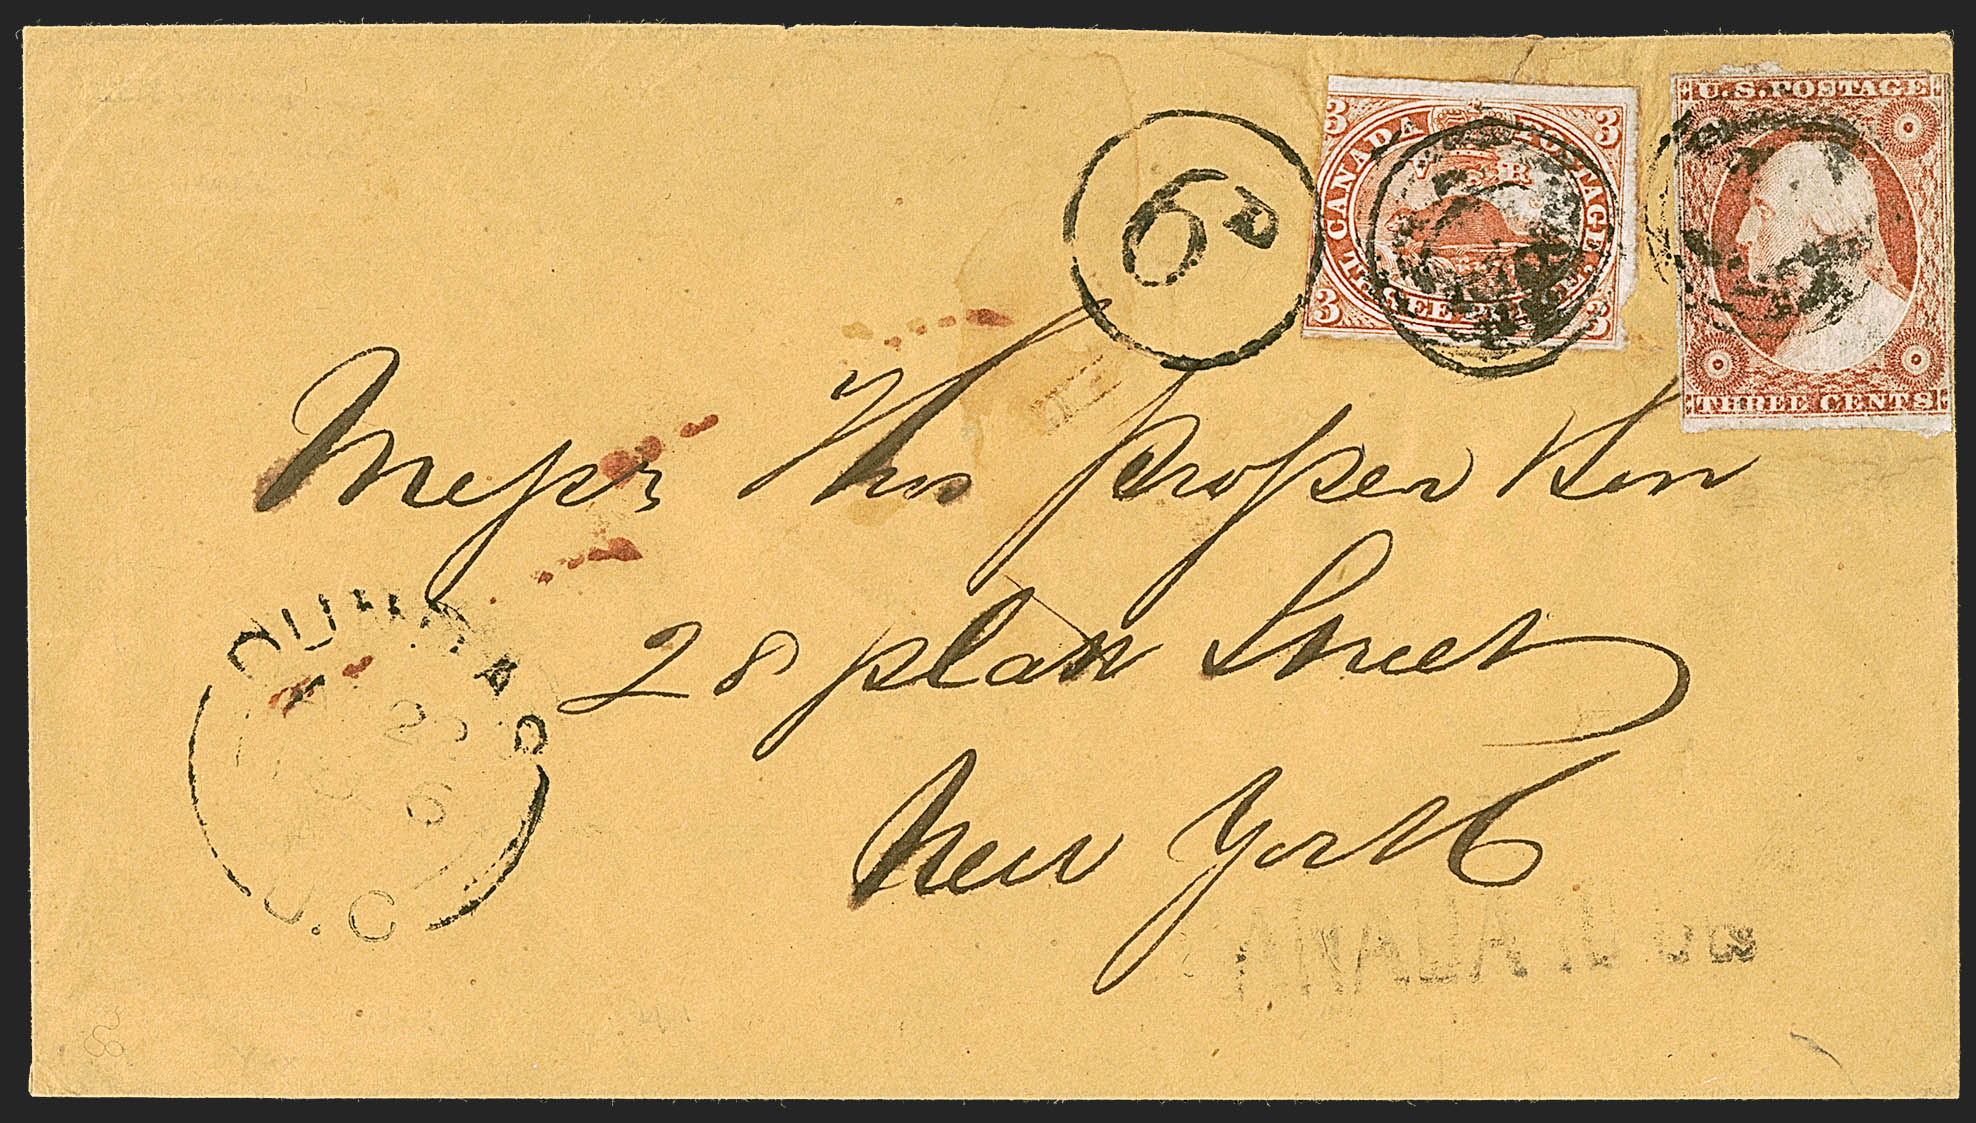 U.S. POSTAGE
THREE CENTS
3 3
CANADA POSTAGE
V R
THREE PENCE
3 3
6D
Messrs Thos Prosser & Son
28 Platt Street
New York
DUNDAS
22
6
U.C.
CANADA 10 cts